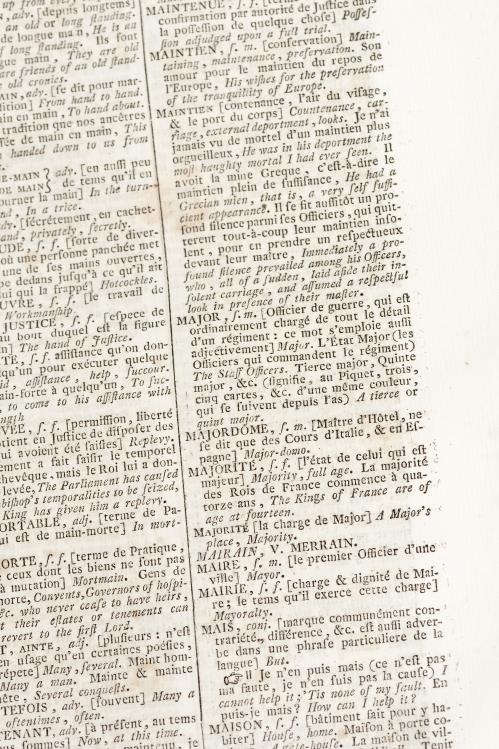 up from every
adv. [depuis longtems]
an old or long ſtanding.
de longue main, He is an
of long ſtanding. Ils ſont
gue main, They are old
are friends of an old ſtand-
old cronies.
AIN, adv. [ſe dit pour mar-
dition] From hand to hand.
in en main, To hand about.
tradition que nos ancêtres
ſée de main en main, This
handed down to us from
E-MAIN } adv. [en auſſi peu
DE MAIN } de tems qu'il en
ourner la main] In the turn-
nd, In a trice.
adv. [ſécrétement, en cachet-
and, privately, ſecretly.
UDE, ſ. f. [ſorte de diver-
où une perſonne panchée met
une de ſes mains ouvertes,
pe dedans juſqu'à ce qu'il ait
lui qui la frappé] Hotcockles.
UVRE, ſ. f. [le travail de
Workmanſhip
JUSTICE, ſ. f. [eſpece de
au bout duquel eſt la figure
in] The hand of Juſtice.
TE, ſ. f. aſſiſtance qu'on don-
qu'un pour exécuter quelque
id, aſſiſtance, help, ſuccour.
ain-forte à quelqu'un, To ſuc-
to come to his aſſiſtance with
ngth
VÉE, ſ. f. [permiſſion, liberté
otient en Juſtice de diſpoſer des
ui avoient été ſaiſies] Replevy.
ement a fait ſaiſir le temporel
chevêque, mais le Roi lui a don-
levée, The Parliament has cauſed
biſhop's temporalities to be ſeized,
King has given him a replevy.
ORTABLE, adj. [terme de Pa-
ui eſt de main-morte] In mort-
ORTE, ſ. f. [terme de Pratique,
ceux dont les biens ne ſont pas
à mutation] Mortmain. Gens de
morte, Convents, Governors of hoſpi-
&c. who never ceaſe to have heirs,
their eſtates or tenements can
revert to the firſt Lord.
T, AINTE, adj. [pluſieurs : n'eſt
en uſage qu'en certaines poéſies,
répete] Many, ſeveral. Maint hom-
Many a man. Mainte & mainte
ête, Several conqueſts.
TEFOIS, adv. [ſouvent] Many a
oftentimes, often.
TENANT, adv. [à préſent, au tems
us ſommes] Now, at this time.
maintenu, je
MAINTENUE, ſ. f. [terme
confirmation par autorité de Juſtice dans
la poſſeſſion de quelque choſe] Poſſeſ-
ſion adjudged upon a full trial.
MAINTIEN, ſ. m. [conſervation] Main-
taining, maintenance, preſervation. Son
amour pour le maintien du repos de
l'Europe, His wiſhes for the preſervation
of the tranquillity of Europe.
MAINTIEN [contenance, l'air du viſage,
& le port du corps] Countenance, car-
riage, external deportment, looks. Je n'ai
jamais vu de mortel d'un maintien plus
orgueilleux, He was in his deportment the
moſt haughty mortal I had ever ſeen. Il
avoit la mine Greque, c'eſt-à-dire le
maintien plein de ſuffiſance, He had a
Grecian mien, that is, a very ſelf ſuffi-
cient appearance. Il ſe fit auſſitôt un pro-
fond ſilence parmi ſes Officiers, qui quit-
terent tout-à-coup leur maintien inſo-
lent, pour en prendre un reſpectueux
devant leur maître, Immediately a pro-
found ſilence prevailed among his Officers,
who, all of a ſudden, laid aſide their in-
ſolent carriage, and aſſumed a reſpectful
look in preſence of their maſter.
MAJOR, ſ. m. [Officier de guerre, qui eſt
ordinairement chargé de tout le détail
d'un régiment : ce mot s'emploie auſſi
adjectivement] Major. L'État Major (les
Officiers qui commandent le régiment)
The Staff Officers. Tierce major, Quinte
major, &c. (ſignifie, au Piquet, trois,
cinq cartes, &c. d'une même couleur,
qui ſe ſuivent depuis l'as) A tierce or
quint major.
MAJORDOME, ſ. m. [Maître d'Hôtel, ne
ſe dit que des Cours d'Italie, & en Eſ-
pagne] Major-domo.
MAJORITÉ, ſ. f. [l'état de celui qui eſt
majeur] Majority, full age. La majorité
des Rois de France commence à qua-
torze ans, The Kings of France are of
age at fourteen.
MAJORITÉ [la charge de Major] A Major's
place, Majority.
MAIRAIN, V. MERRAIN.
MAIRE, ſ. m. [le premier Officier d'une
ville] Mayor.
MAIRIE, ſ. f. [charge & dignité de Mai-
re ; le tems qu'il exerce cette charge]
Mayoralty.
MAIS, conj. [marque communément con-
trariété, différence, &c. eſt auſſi adver-
be dans une phraſe particuliere de la
langue] But.
☞ Il Je n'en puis mais (ce n'eſt pas
ma faute, je n'en ſuis pas la cauſe) I
cannot help it ; 'Tis none of my fault. En
puis-je mais ? How can I help it ?
MAISON, ſ. f. [bâtiment fait pour y ha-
biter] Houſe, home. Maiſon à porte co-
A gate-houſe. La maiſon de vil-